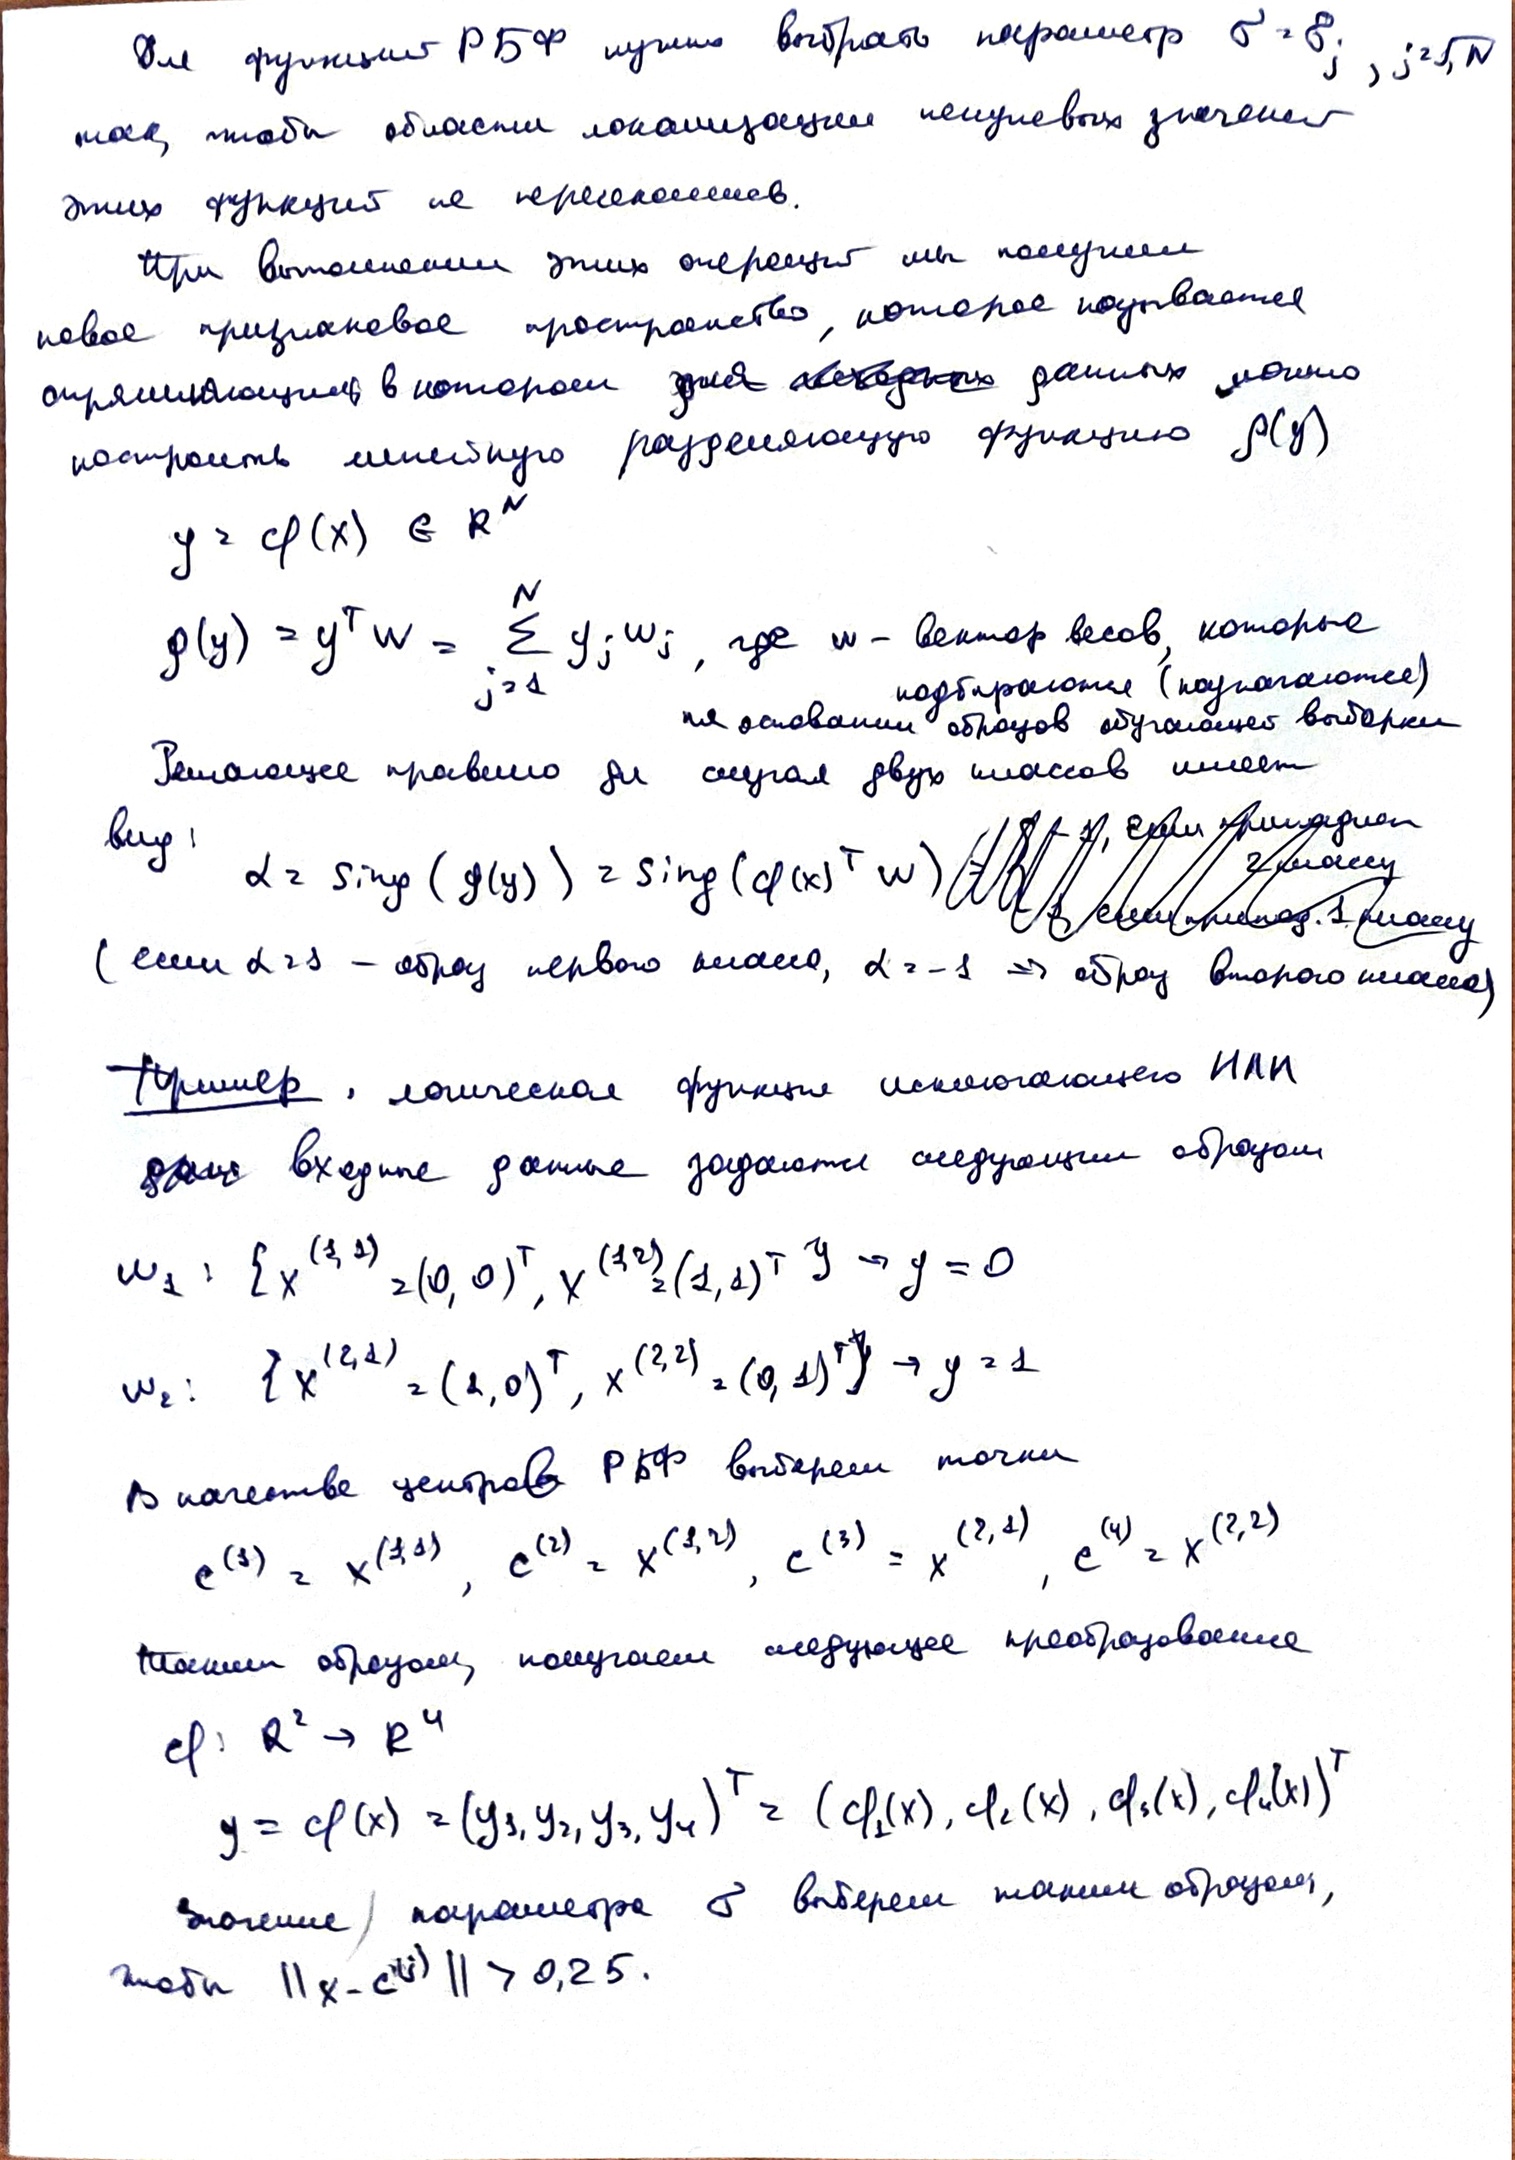 Для функций РБФ нужно выбрать параметр σ = σ_j, j=1,N
так, чтобы области локализации ненулевых значений
этих функций не пересекались.
При выполнении этих операций мы получим
новое признаковое пространство, которое называется
спрямляющим, в котором для данных можно
построить линейную разделяющую функцию ρ(y)
y = φ(x) ∈ R^N
ρ(y) = y^T w = Σ_{j=1}^{N} y_j w_j, где w – вектор весов, которые
подбираются (назначаются)
на основании образов обучающей выборки
Решающее правило для случая двух классов имеет
вид:
α = sing(ρ(y)) = sing(φ(x)^T w)
(если α=1 – образ первого класса, α=-1 => образ второго класса)
Пример. логическая функция исключающего ИЛИ
входные данные задаются следующим образом
w_1: {x^(1,1) = (0,0)^T, x^(1,2) = (1,1)^T} → y = 0
w_2: {x^(2,1) = (1,0)^T, x^(2,2) = (0,1)^T} → y = 1
В качестве центров РБФ выберем точки
c^(1) = x^(1,1), c^(2) = x^(1,2), c^(3) = x^(2,1), c^(4) = x^(2,2)
Таким образом, получаем следующее преобразование
φ: R^2 → R^4
y = φ(x) = (y_1, y_2, y_3, y_4)^T = (φ_1(x), φ_2(x), φ_3(x), φ_4(x))^T
Значение параметра σ выберем таким образом,
чтобы ||x - c^(j)|| > 0,25.